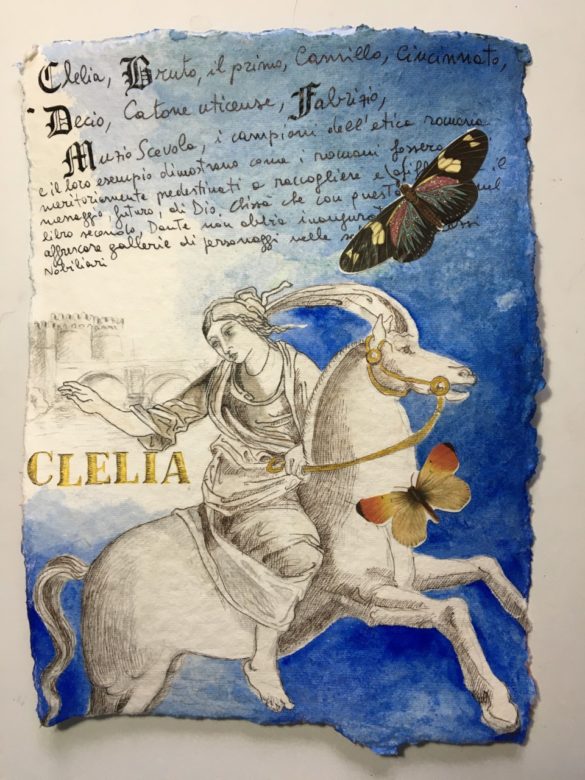 Clelia, Bruto, il primo, Camillo, Cincinnato,
Decio, Catone uticense, Fabrizio,
Muzio Scevola, i campioni dell'etica romana
e il loro esempio dimostrano come i romani fossero
meritoriamente predestinati a raccogliere e il
messaggio futuro, di Dio. Chissà che con questo nel
libro secondo, Dante non abbia
affrescare gallerie di personaggi nelle
nobiliari
CLELIA